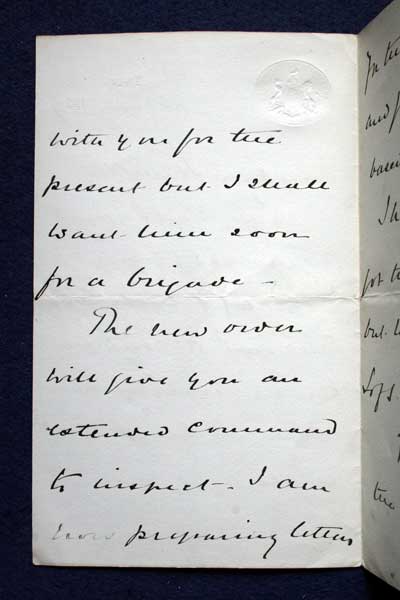 with you for the
present but I shall
want him soon
for a brigade -
The new order
will give you an
extended command
to inspect - I am
now preparing letters
In the
and
I h
but
the